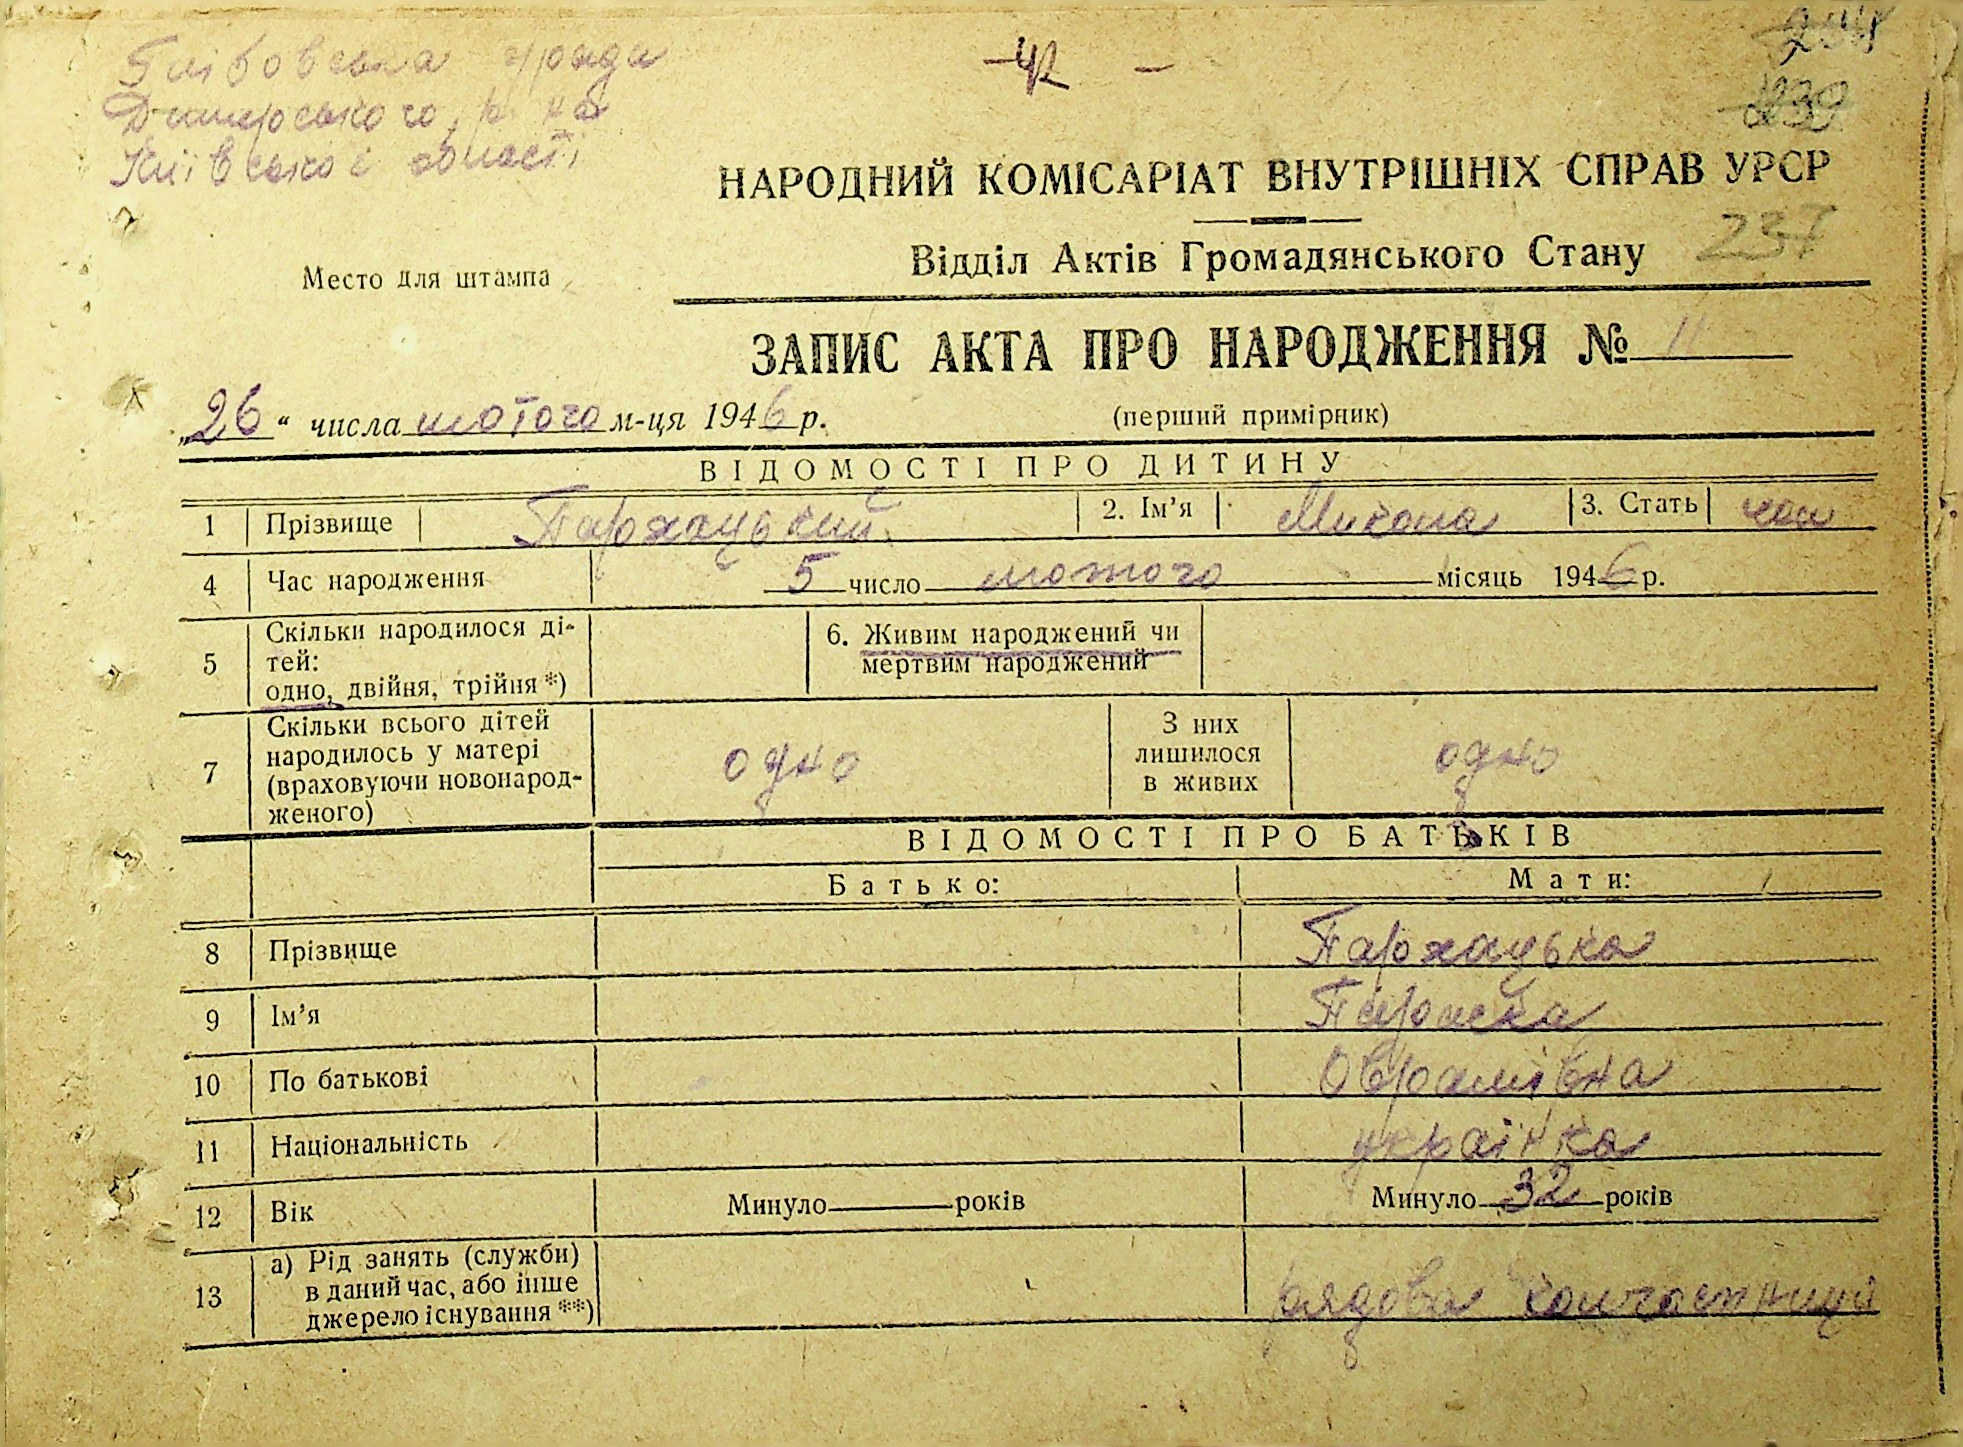 Димерського р-на
Київської області
НАРОДНИЙ КОМІСАРІАТ ВНУТРІШНІХ СПРАВ УРСР
239
237
Відділ Актів Громадянського Стану
Место для штампа
ЗАПИС АКТА ПРО НАРОДЖЕННЯ № 11
„26“ числа лютого м-ця 1946 р.
(перший примірник)
ВІДОМОСТІ ПРО ДИТИНУ
1 Прізвище Пархацький 2. Ім’я Микола 3. Стать чол
4 Час народження 5 число лютого місяць 1946 р.
5 Скільки народилося ді-
тей:
одно, двійня, трійня *)
6. Живим народжений чи
мертвим народжений
7 Скільки всього дітей
народилось у матері
(враховуючи новонарод-
женого)
одно
З них
лишилося
в живих
одно
ВІДОМОСТІ ПРО БАТЬКІВ
Батько: Мати:
8 Прізвище Пархацька
9 Ім’я Параска
10 По батькові Оврамівна
11 Національність українка
12 Вік Минуло років Минуло 32 років
13 а) Рід занять (служби)
в даний час, або інше
джерело існування **)
рядова колгоспниця